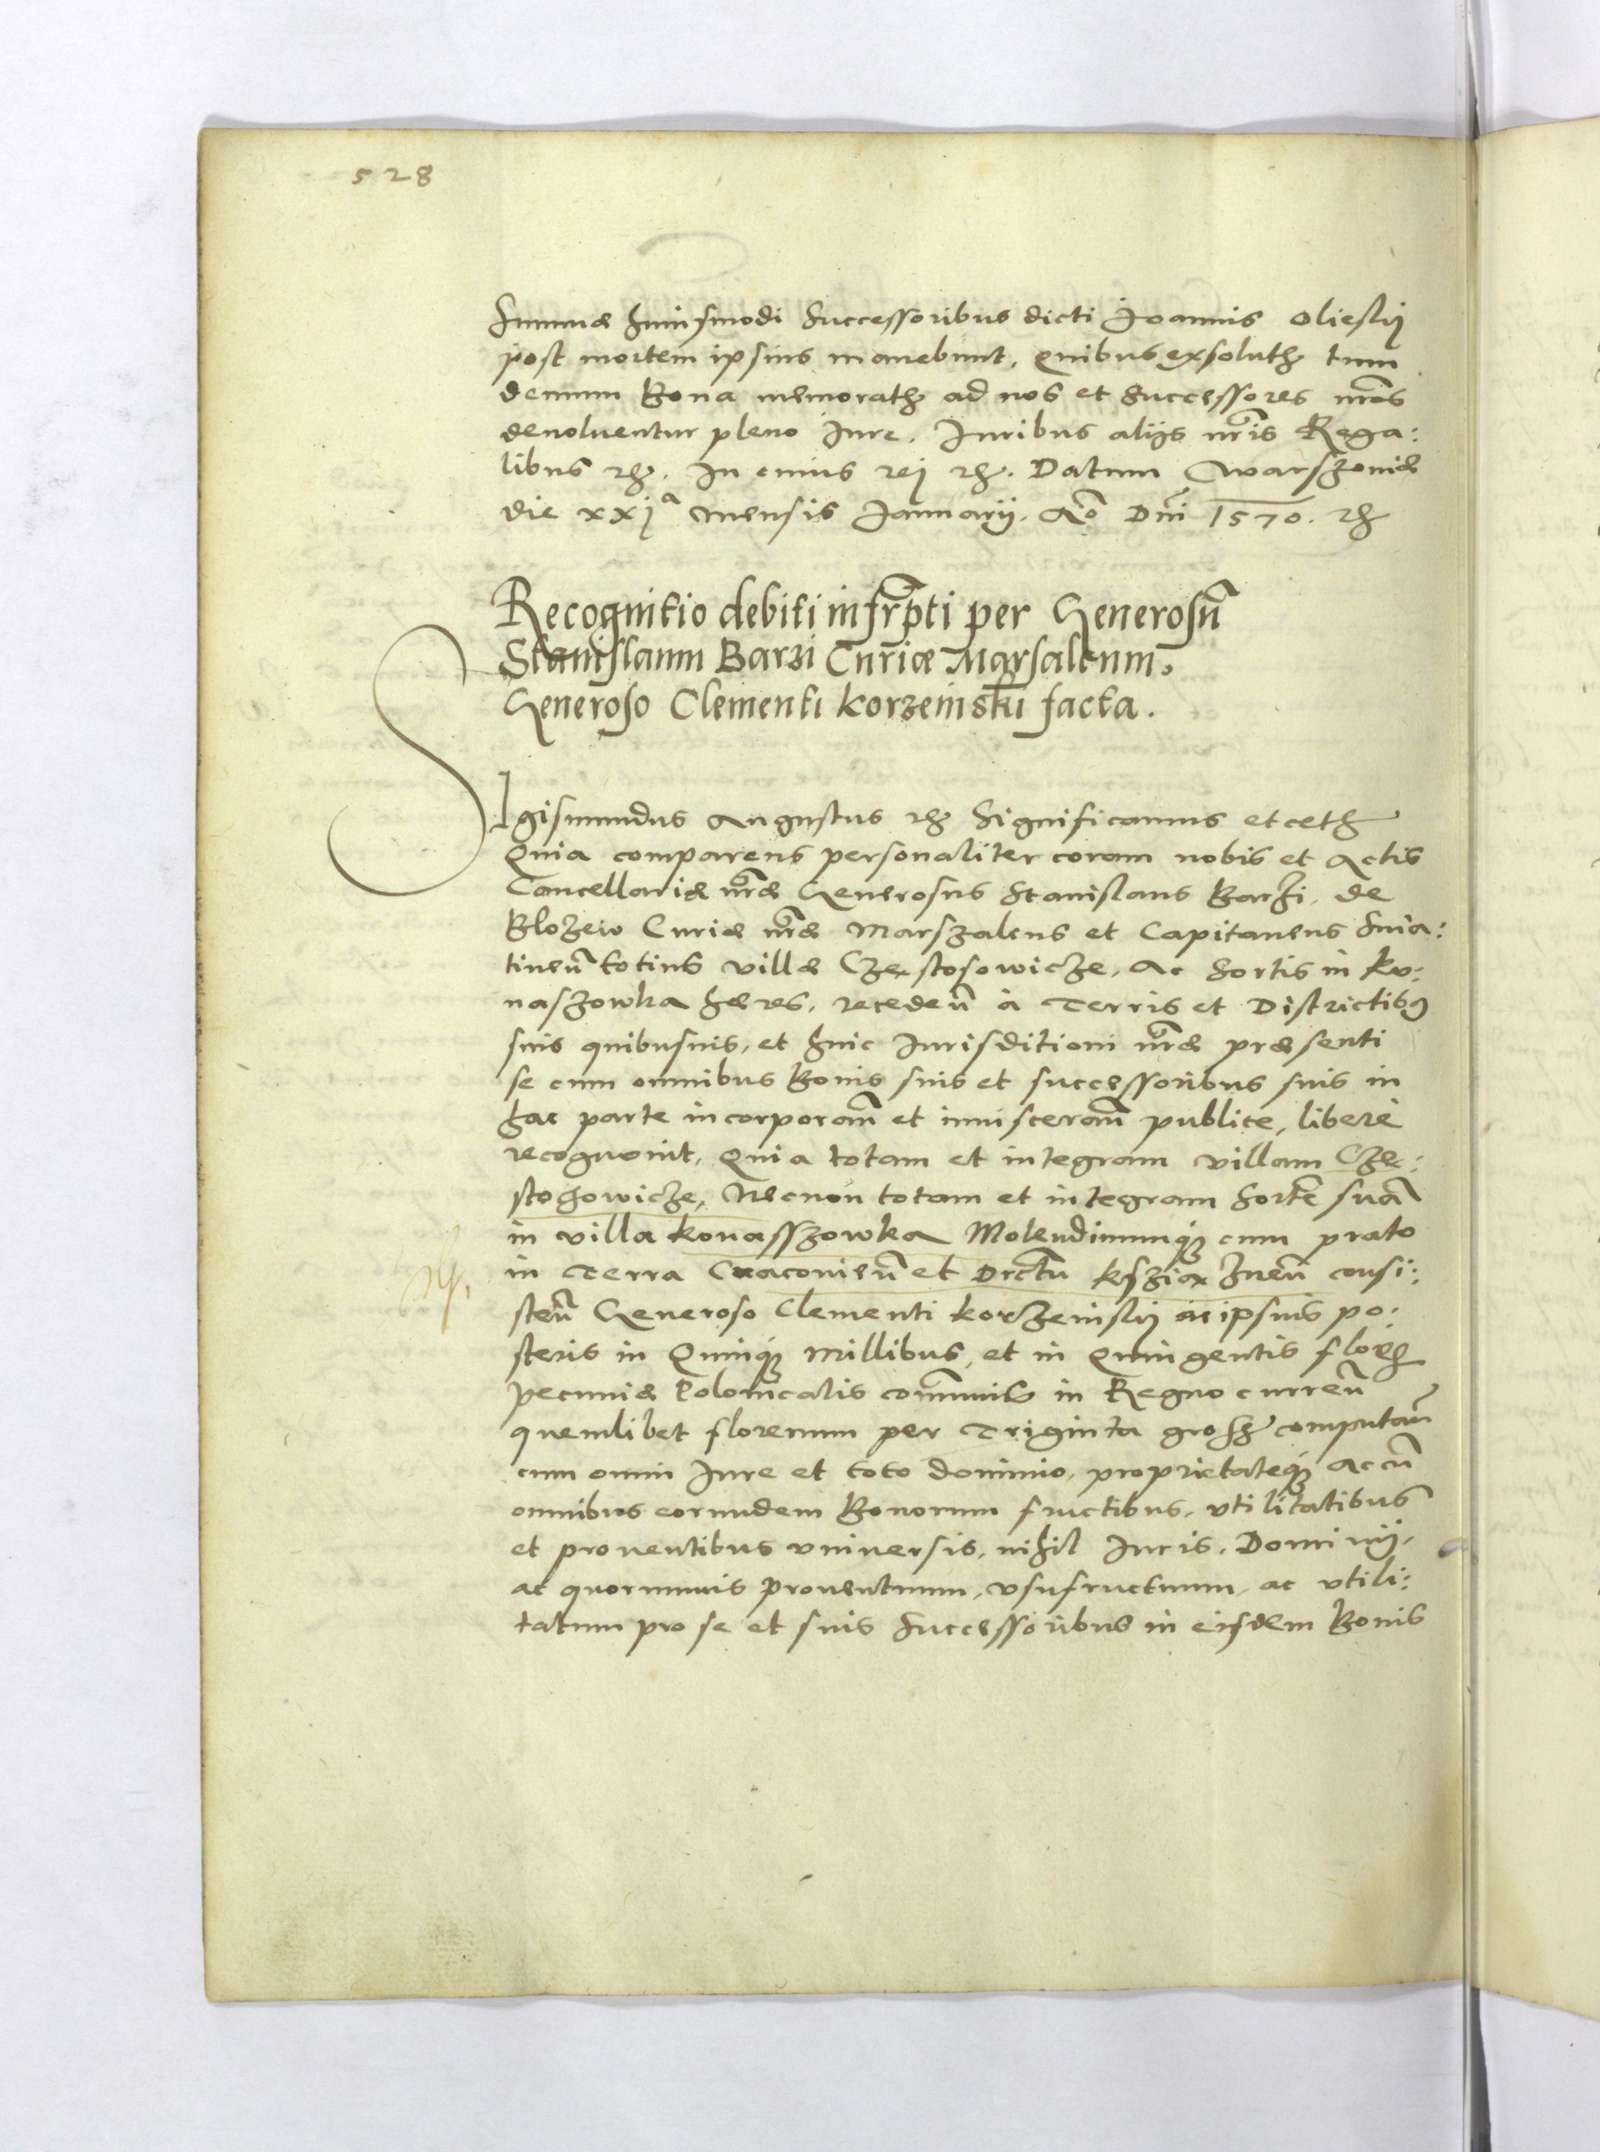 528
Summæ huiusmodi Successoribus dicti Joannis Olieskÿ
post mortem ipsius manebunt, Quibus exsolutꝭ tum
demum Bona memoratꝭ ad nos et Successores nr̃os
deuoluentur pleno Iure, Iuribus alÿs nr̃is Rega:
libus ꝛꝭ. In cuius rej ꝛꝭ. Datum Warszouiæ
die xxjᵃ Mensis Januarÿ. Aõ Dnĩ 1570. ꝛꝭ
Recognitio debiti infrꝑti per Generosũ
Stanislaum Barzi Curiæ Marsalcum,
Generoso Clementi Korzeinskÿ facta.
SIgismundus Augustus ꝛꝭ Significamus etcetꝭ
Quia comparens personaliter coram nobis et Actis
Cancellariæ nr̃æ Generosus Stanislaus Barzi, de
Blozew Curiæ nr̃æ Marszalcus et Capitaneus Snia:
tineñ totius villæ Czestosowicze, Ac Sortis in Ko:
naszowka hæres, recedeñ à Terris et Districtibꝰ
suis quibusuis, et huic Iurisditioni nr̃æ præsenti
se cum omnibus Bonis suis et successoribus suis in
hac parte incorporañ et inuisceran̄ publice, liberè
recognouit, Quia totam et integram villam Cze:
stochowicze, Necnon totam et integram Sortẽ suã
in villa Konasszowka Molendinumqꝫ cum prato
in Terra Cracovieñ et Drctũ Ksziąxzneñ consi:
steñ Generoso Clementi Korzeinskÿ ac ipsius po:
steris in Quinqꝫ Millibus, et in Quingentis floreꝭ
pecuniæ Polonicalis com̃unis in Regno curreñ
quemlibet florenum per Triginta grosꝭ computañ
cum omni Iure et toto dominio, proprietateqꝫ Ac cũ
omnibus eorundem Bonorum fructibus, vtilitatibus
et prouentibus vniuersis, nihil Iuris, Dominÿ,
ac quorumuis prouentuum, vsufructuum, ac vtili:
tatum pro se et suis Successoribus in eisdem Bonis